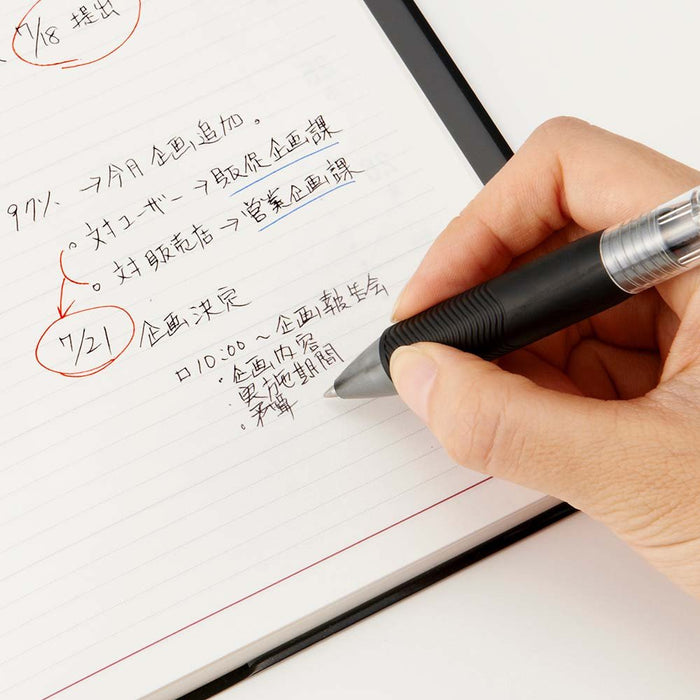 7/18 提出
97% →今月企画追加。
。対ユーザー→販促企画課
。対販売店→営業企画課
7/21 企画決定
□10:00～企画報告会
・企画内容
・実施期間
・予算